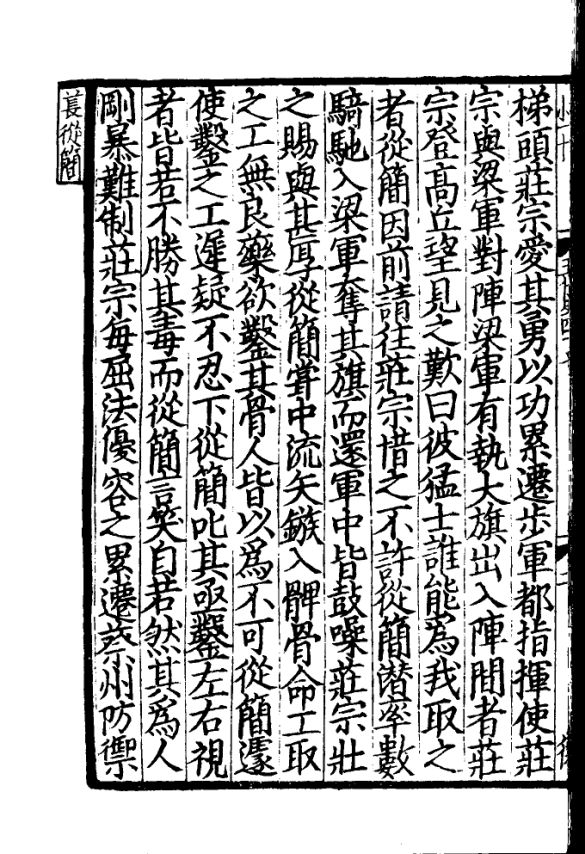 梯頭莊宗愛其勇以功累遷步軍都指揮使莊
宗與梁軍對陣梁軍有執大旗出入陣間者莊
宗登高丘望見之歎曰彼猛士誰能為我取之
者從簡因前請往莊宗惜之不許從簡潛率數
騎馳入梁軍奪其旗而還軍中皆鼓噪莊宗壯
之賜與甚厚從簡嘗中流矢鏃入髀骨命工取
之工無良藥欲鑿其骨人皆以為不可從簡遽
使鑿之工遲疑不忍下從簡叱其亟鑿左右視
者皆若不勝其毒而從簡言笑自若然其為人
剛暴難制莊宗每屈法優容之累遷蔡州防禦
萇從簡